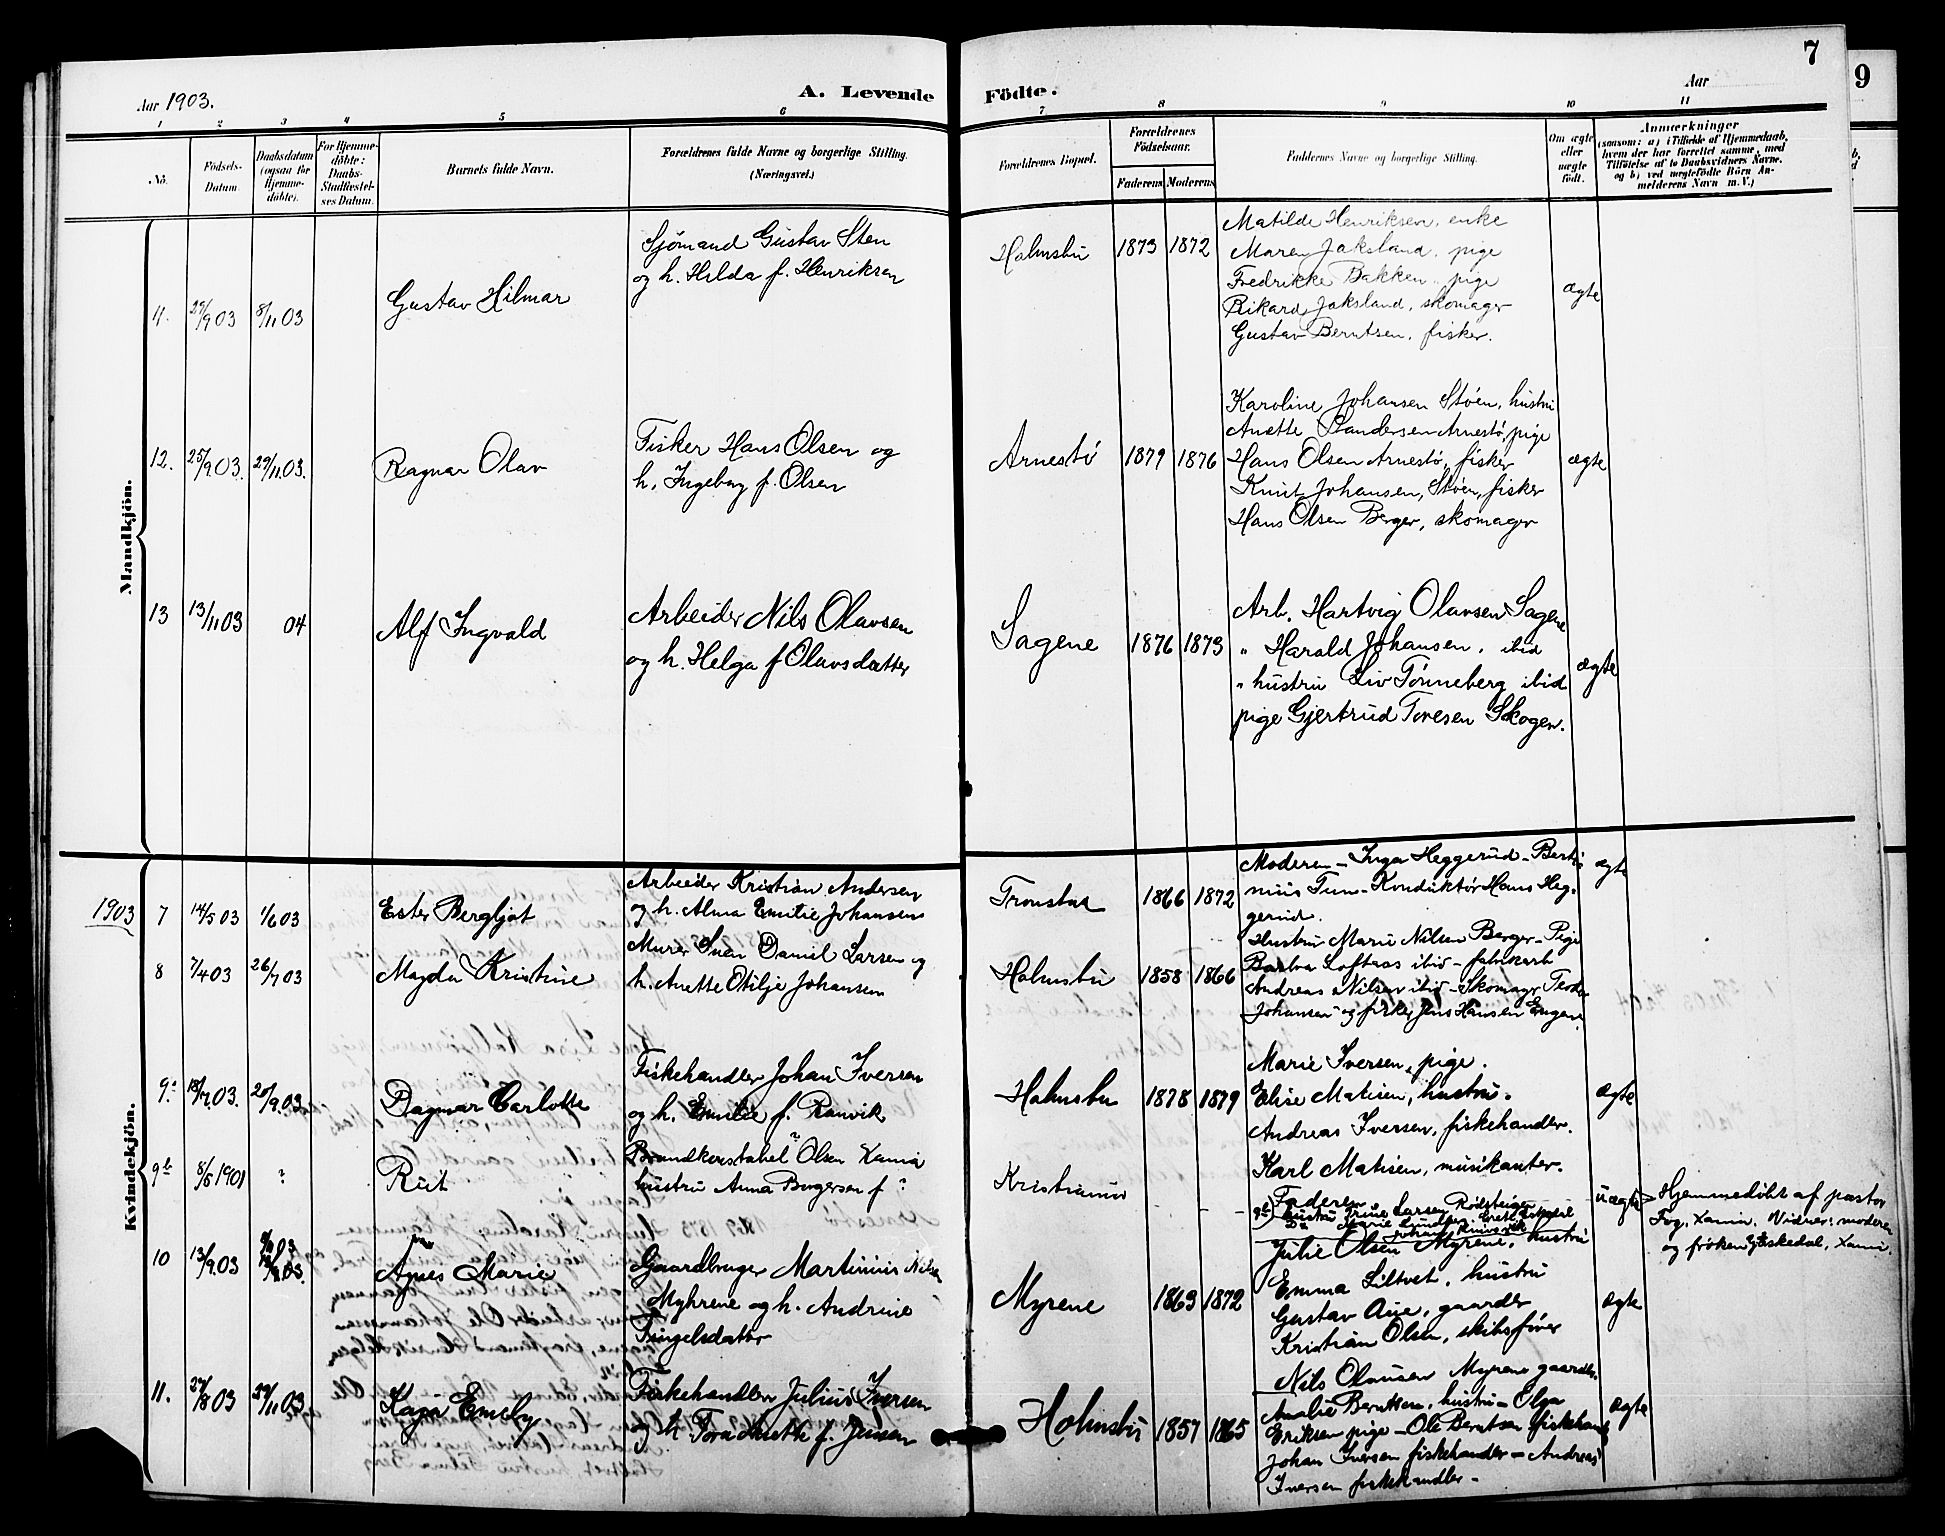 7
9
Aar 1903.
A. Levende
Födte.
Aar
1 2 3 4 5 6 7 8 9 10 11
No.
Födsels-
Datum.
Daabsdatum
(ogsaa for
Hjemme-
döbte).
For Hjemme-
döbte:
Daabs-
Stadfæstel-
ses Datum.
Barnets fulde Navn.
Forældrenes fulde Navne og borgerlige Stilling.
(Næringsvei.)
Forældrenes Bopæl.
Forældrenes
Födselsaar.
Faderens
Moderens
Faddernes Navne og borgerlige Stilling.
Om ægte
eller
uægte
födt.
Anmærkninger
(saasom: a) i Tilfælde af Hjemmedaab,
hvem der har forrettet samme, med
Tilföielse af to Daabsvidners Navne.
og b) ved uægtefödte Börn An-
melderens Navn m. V.)
Mandkjön.
11. 29/9 03 8/11 03
Gustav Hilmar
Sjömand Gustav Sten
og h. Hilda f. Henriksen
Holmsbu 1873 1872
Matilde Henriksen, enke
Maren Jaksland, pige
Fredrikke Bakken, pige
Rikard Jaksland, skomager
Gustav Berntsen, fisker.
ægte
12. 25/9 03. 29/11 03.
Ragnar Olav
Fisker Hans Olsen og
h. Ingeborg f. Olsen
Arnestö 1879 1876
Karoline Johansen Stöen, hustru
Anette Randersen Arnestö, pige
Hans Olsen Arnestö, fisker
Knut Johansen, Stöen, fisker
Hans Olsen Berger, skomager
ægte
13 13/11 03 04
Alf Ingvald
Arbeider Nils Olavsen
og h. Helga f Olavsdatter
Sagene 1876 1873
Arb. Hartvig Olavsen Sagene
" Harald Johansen, ibid
" hustru Liv Tönneberg ibid
pige Gjertrud Toresen Skogen.
ægte
Kvindekjön.
1903 7 14/5 03 1/6 03
Ester Bergljot
Arbeider Kristian Andersen
og h. Alma Emilie Johansen
Tronstad 1866 1872
Moderen – Inga Heggerud – Bert
nius Tun – Konduktör Hans Heg-
gerud.
ægte
8 7/4 03 26/7 03
Magda Kristine
Murer Sven Daniel Larsen og
h. Anette Otilje Johansen
Holmsbu 1858 1866
Hustru Marie Nilsen Berger – Pige
Loftaas ibid – fabrikarb
Andreas Nilsen ibid – Skomagr
Johansen og fisker Jens Hansen
9a 18/7 03. 20/9 03.
Dagmar Carlotte
Fiskehandler Johan Iversen
og h. Emilie f. Ramvik
Holmsbu 1878 1879
Marie Iversen, pige.
Elise Matisen, hustru.
Andreas Iversen, fiskehandler.
Karl Matisen, musikanter.
ægte
9b 8/6 1901 ?
Rut
Brandkonstabel Olsen Xania
hustru Anna Borgersen f ?
Kristiania - -
Faderen
9b) hustru Trine Larsen
uægte
Hjemmedöbt af pastor
Fog, Xania. Vidner: moderen
og fröken Xania.
10 13/9 03
Agnes Marie
Gaardbruger Martinius Nilsen
Myhrene og h. Andrine
Engelsdatter
Myrene 1863 1872
Julie Olsen Myrene, hustru
Emma Siltvet, hustru
Gustav Aue, gaardbr
Kristian Olsen, skibsförer
Nils Olausen Myrene gaardbr.
ægte
11. 27/8 03 29/11 03
Kaja Emely
Fiskehandler Julius Iversen
og h Tora Anette f. Jensen
Holmsbu 1857 1865
Amalie Berntsen, hustru – Olga
Eriksen pige – Ole Berntsen fiskehand
Johan Iversen fiskehandler – Andreas
Iversen fiskehandler –
ægte